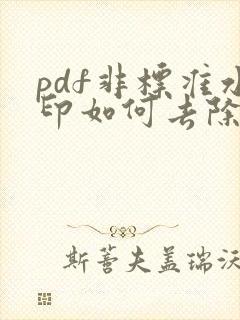 pdf非标准水
印如何去除
斯蒈夫盖瑞沃